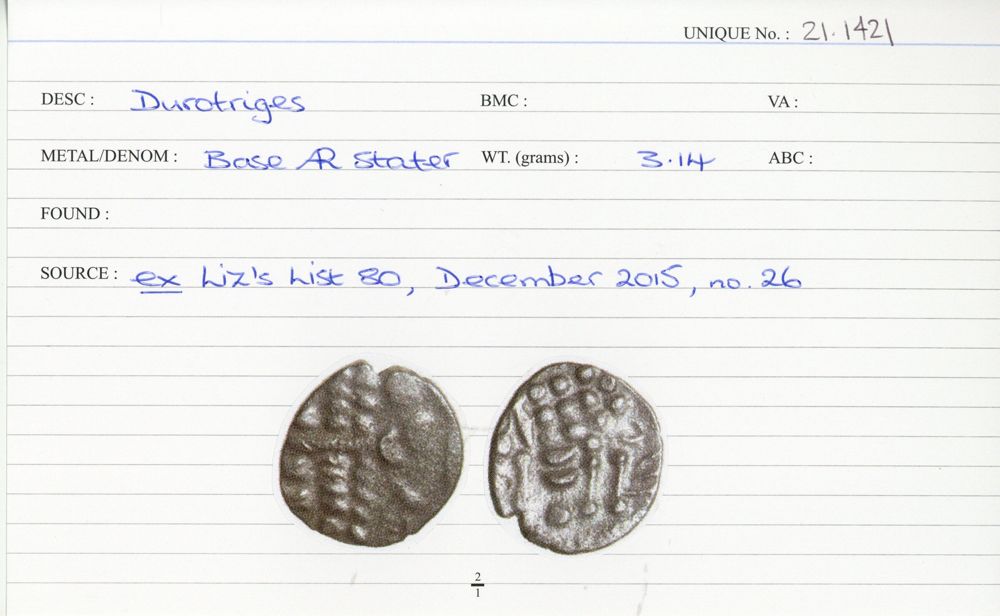 UNIQUE No. : 21.1421
DESC : Durotriges BMC : VA :
METAL/DENOM : Base AR Stater WT. (grams) : 3.14 ABC :
FOUND :
SOURCE : ex Liz's List 80, December 2015, no. 26
2
1